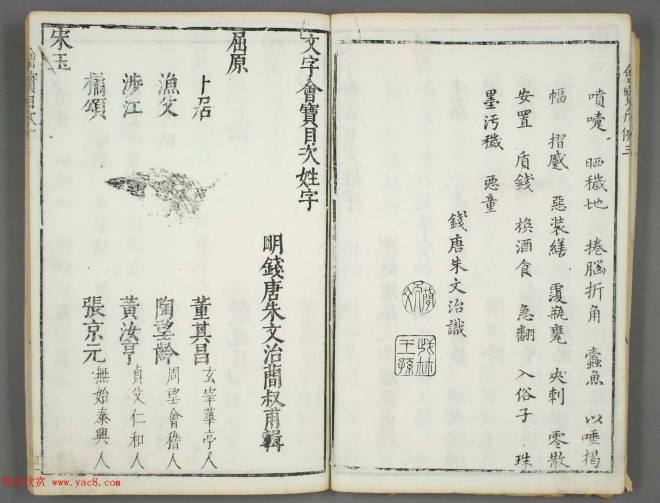 噴嚏 晒穢地 捲腦折角 蠹魚 以唾揭
幅 摺蹙 惡裝繕 覆瓿甕 夾刺 零散
安置 質錢 換酒食 急翻 入俗子 珠
墨污穢 惡童
錢唐朱文治識
文字會寶目次姓字
明錢唐朱文治簡叔甫輯
屈原
卜居 董其昌 玄宰華亭人
漁父 陶望齡 周望會稽人
涉江 黃汝亨 貞父仁和人
橘頌 張京元 無始泰興人
宋玉
書法欣賞 www.yac8.com